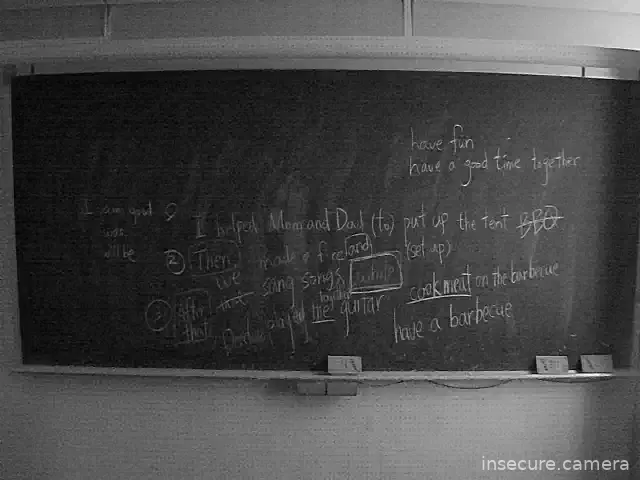 have fun
have a good time together
I am good
was
will be
I helped Mom and Dad (to) put up the tent BBQ
(set up)
② Then made a fire and
we sang songs while
cook meat on the barbecue
③ after that
played the guitar
have a barbecue
insecure.camera